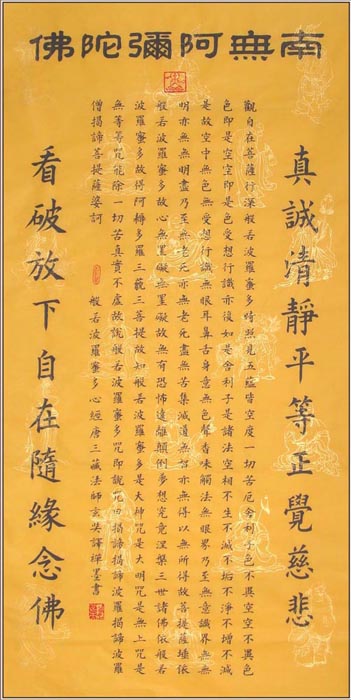 南無阿彌陀佛
真誠清靜平等正覺慈悲
觀自在菩薩行深般若波羅蜜多時照見五蘊皆空度一切苦厄舍利子色不異空空不異色
色即是空空即是色受想行識亦復如是舍利子是諸法空相不生不滅不垢不淨不增不減
是故空中無色無受想行識無眼耳鼻舌身意無色聲香味觸法無眼界乃至無意識界無無
明亦無無明盡乃至無老死亦無老死盡無苦集滅道無智亦無得以無所得故菩提薩埵依
般若波羅蜜多故心無罣礙無罣礙故無有恐怖遠離顛倒夢想究竟涅槃三世諸佛依般若
波羅蜜多故得阿耨多羅三藐三菩提故知般若波羅蜜多是大神咒是大明咒是無上咒是
無等等咒能除一切苦真實不虛故說般若波羅蜜多咒即說咒曰揭諦揭諦波羅揭諦波羅
僧揭諦菩提薩婆訶 般若波羅蜜多心經唐三藏法師玄奘譯禪墨書
看破放下自在隨緣念佛